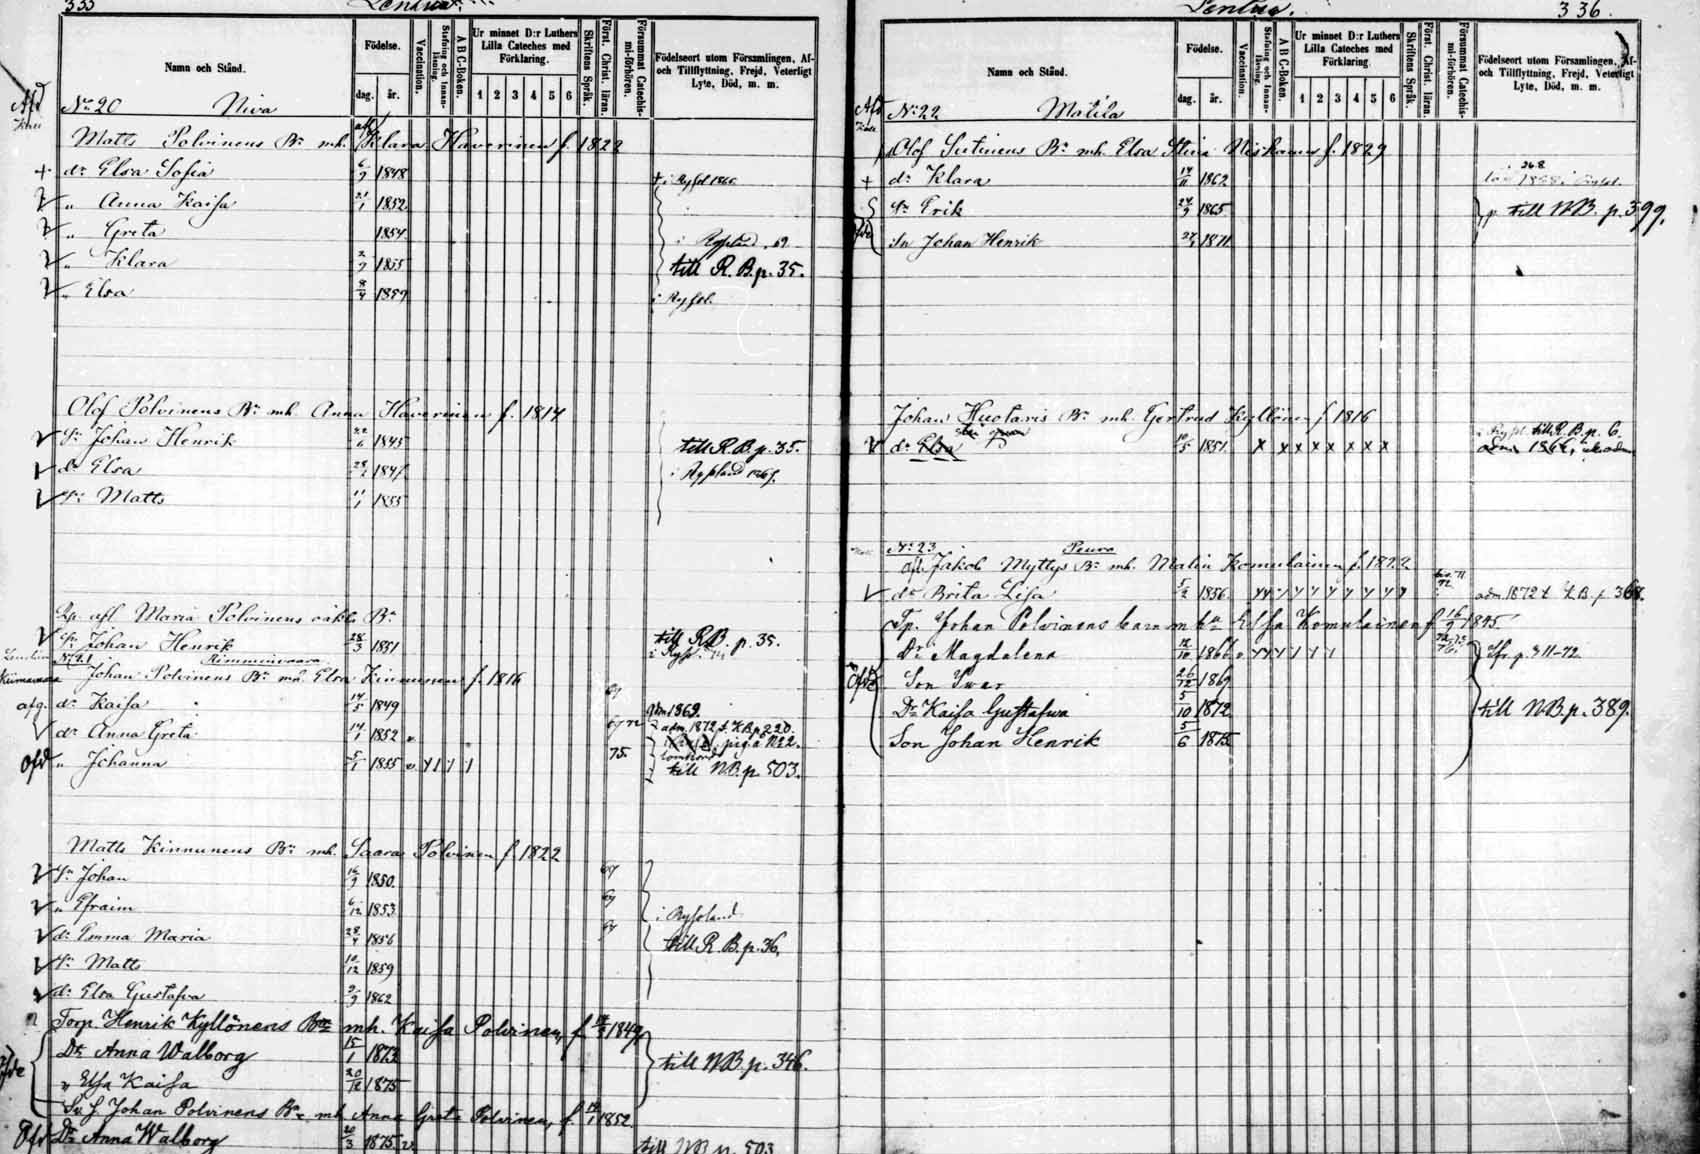 335 Lentua.
Namn och Stånd. Födelse. dag. år. Vaccination. Stafning och Innanläsning. A B C-Boken. Ur minnet D:r Luthers Lilla Cateches med Förklaring. 1 2 3 4 5 6 Skriftens Språk. Först. Christ. läran. Försummat Catechismi-förhören. Födelseort utom Församlingen, Af- och Tillflyttning, Frejd, Veterligt Lyte, Död, m. m.
No 20 Niva
Matts Polvinens Bn mh. Klara Haverinen f. 1822
+ dr Elsa Sofia 6/9 1848 + i Ryssl 1866.
" Anna Kaisa 21/1 1852
" Greta 1854 i Ryssland 69
" Klara 2/9 1855 till R.B.p. 35.
" Elsa 8/4 1859 i Ryssl.
Olof Polvinens Bn mh. Anna Haverinen f. 1814
Sn Johan Henrik 22/6 1845 till R.B.p. 35.
dr Elsa 28/2 184 i Ryssland
Sn Matts 11/1 1855
afl Maria Polvinens oäkta Bn
Sn Johan Henrik 28/3 1851 till R.B. p. 35. i Ryssl.
No 21 Rimminvaara
Johan Polvinens Bn m. Elsa Kinnunen f. 1816
afg. dr Kaisa 14/5 1849 69 1869.
dr Anna Greta 14/1 1852 v adm. 1872 t. K.B.p. 220.
Ofd " Johanna 5/1 1855 v 75. till NB.p. 503.
Matts Kinnunens Bn mh. Saara Polvinen f. 1822
Sn Johan 16/9 1850. 69
" Efraim 6/12 1853 69 i Ryssland
dr Emma Maria 28/4 1856 69 till R.B.p. 36,
Sn Matts 10/12 1859
dr Elsa Gustafva 2/9 1862
Torp. Henrik Kyllönens Bn mh. Kaisa Polvinen, f. 14/5 1849,
Dr Anna Walborg 15/1 1873 till NB.p. 346.
" Elsa Kaisa 20/12 1875
Johan Polvinens Bn mh Anna Greta Polvinen, f. 14/1 1852.
Ofd Dr Anna Walborg 20/3 1875 v. till NB p. 503
Lentua. 336.
Namn och Stånd. Födelse. dag. år. Vaccination. Stafning och Innanläsning. A B C-Boken. Ur minnet D:r Luthers Lilla Cateches med Förklaring. 1 2 3 4 5 6 Skriftens Språk. Först. Christ. läran. Försummat Catechismi-förhören. Födelseort utom Församlingen, Af- och Tillflyttning, Frejd, Veterligt Lyte, Död, m. m.
No 22 Matila
Olof Sutinens Bn mh. Elsa Stina Niskanen f. 1829
+ dr Klara 14/11 1862
Sn Erik 24/9 1865 till NB. p. 399.
Sn Johan Henrik 1871
Johan Huotaris Bn mh. Gertrud Kyllönen f 1816
dr Elsa 10/5 1851 x x x x x x x x x i Ryssl. till R.B.p. 6.
No 23 Peura
Jakob Myttys Bn mh. Malin Komulainen f. 1822
dr Brita Lisa 5/2 1856 adm. 1872 t K.B. p 368.
Tp. Johan Polvinens barn m hu Elsa Komulainen f 16/9 1845
Dr Magdalena 12/10 1866 v Ifr. p. 311-72.
Son Ivar 26/12 1869
Dr Kaisa Gustafva 5/10 1872 till NB.p. 389.
Son Johan Henrik 5/6 1875